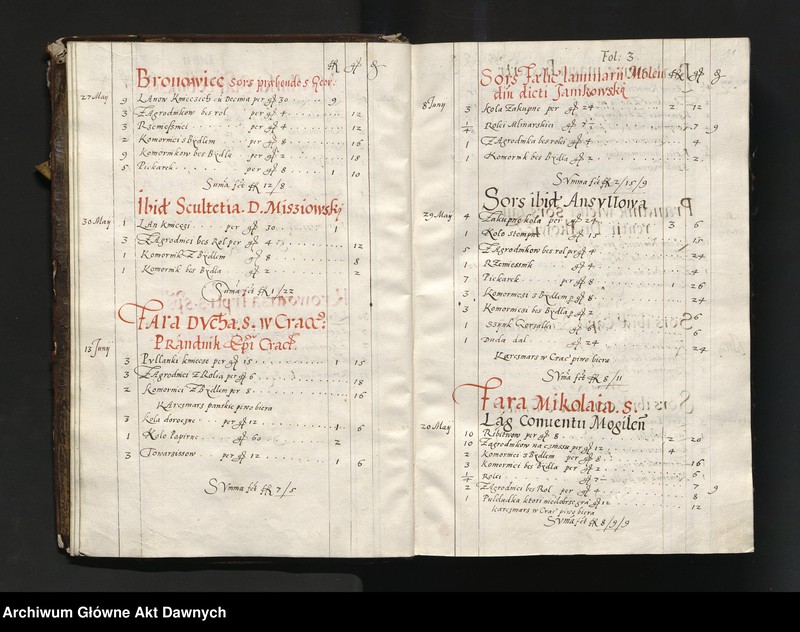 Bronowice sors pręhendo S Geor.
27 May 9 Łanow Kmeczich cu Decima per gr 30 9
3 Zagrodnikow bes rol per gr 4 12
3 Rzemesnici per gr 4 12
2 Komornici s Bydlem per gr 8 16
9 Komornikow bes Bydla gr 2 18
5 Piekarek per gr 8 1 10
Suma fct 12/8
Ibid Scultetia. D. Misziowsky
30 May 1 Łan kmeczi per gr 30 1
3 Zagrodnici bes Rol per gr 4 12
1 Komornik Z Bydlem gr 8 8
1 Komornik bes Bydla gr 2 2
Suma fct 1/22
Fara Ducha. S. w Crac:
Prandnik Epi Crac.
13 Juny 3 Pyllanki kmecze per gr 15 1 15
3 Zagrodnici z Rolia per gr 6 18
2 Komornici Z Bydlem per 8 16
Karczmars panskie piwo biera
3 Kola doroczne per gr 12 1 6
1 Kolo Papirne gr 60 2
3 Towarissow per gr 12 1 6
Summa fct 7/5
Fol: 3
Sors Fælic laminarii Molen
din dicti Jamkowski
8 Juny 3 Kola Zakupne per gr 24 2 12
1/4 Rolei Mlinarskiei 7 9
1 Zagrodnika bes rolei gr 4 4
1 Komornik bes Bydla gr 2 2
Summa fct 2/15/9
Sors ibid Ansyllowa
29 May 4 Zakupne kola per gr 24 3 6
1 Kolo stompne 15
5 Zagrodnikow bes rol per gr 4 24
1 Rzemiesnik gr 4 4
7 Piekarek per gr 8 1 26
3 Komornicsi s Bydlem p gr 8 24
3 Komornicsi bes Bydla p gr 2 6
1 gr 6 6
1 Duda dal gr 24 24
Karczmars w Crac piwo biera
Suma fct 8/11
Fara Mikolaia. S.
Lag Conuentu Mogilen
20 May 10 Ribitwow per gr 8 2 20
10 Zagrodnikow na czinssu per gr 12 4
2 Komornici z Bydlem per gr 8 16
3 Komornici bes Bydla per gr 2 6
1/4 Rolei 7 9
2 Zagrodnici bes Rol per gr 4 8
1 12
Karczmars w Crac piwo biera
Suma fct 8/9/9
Archiwum Główne Akt Dawnych